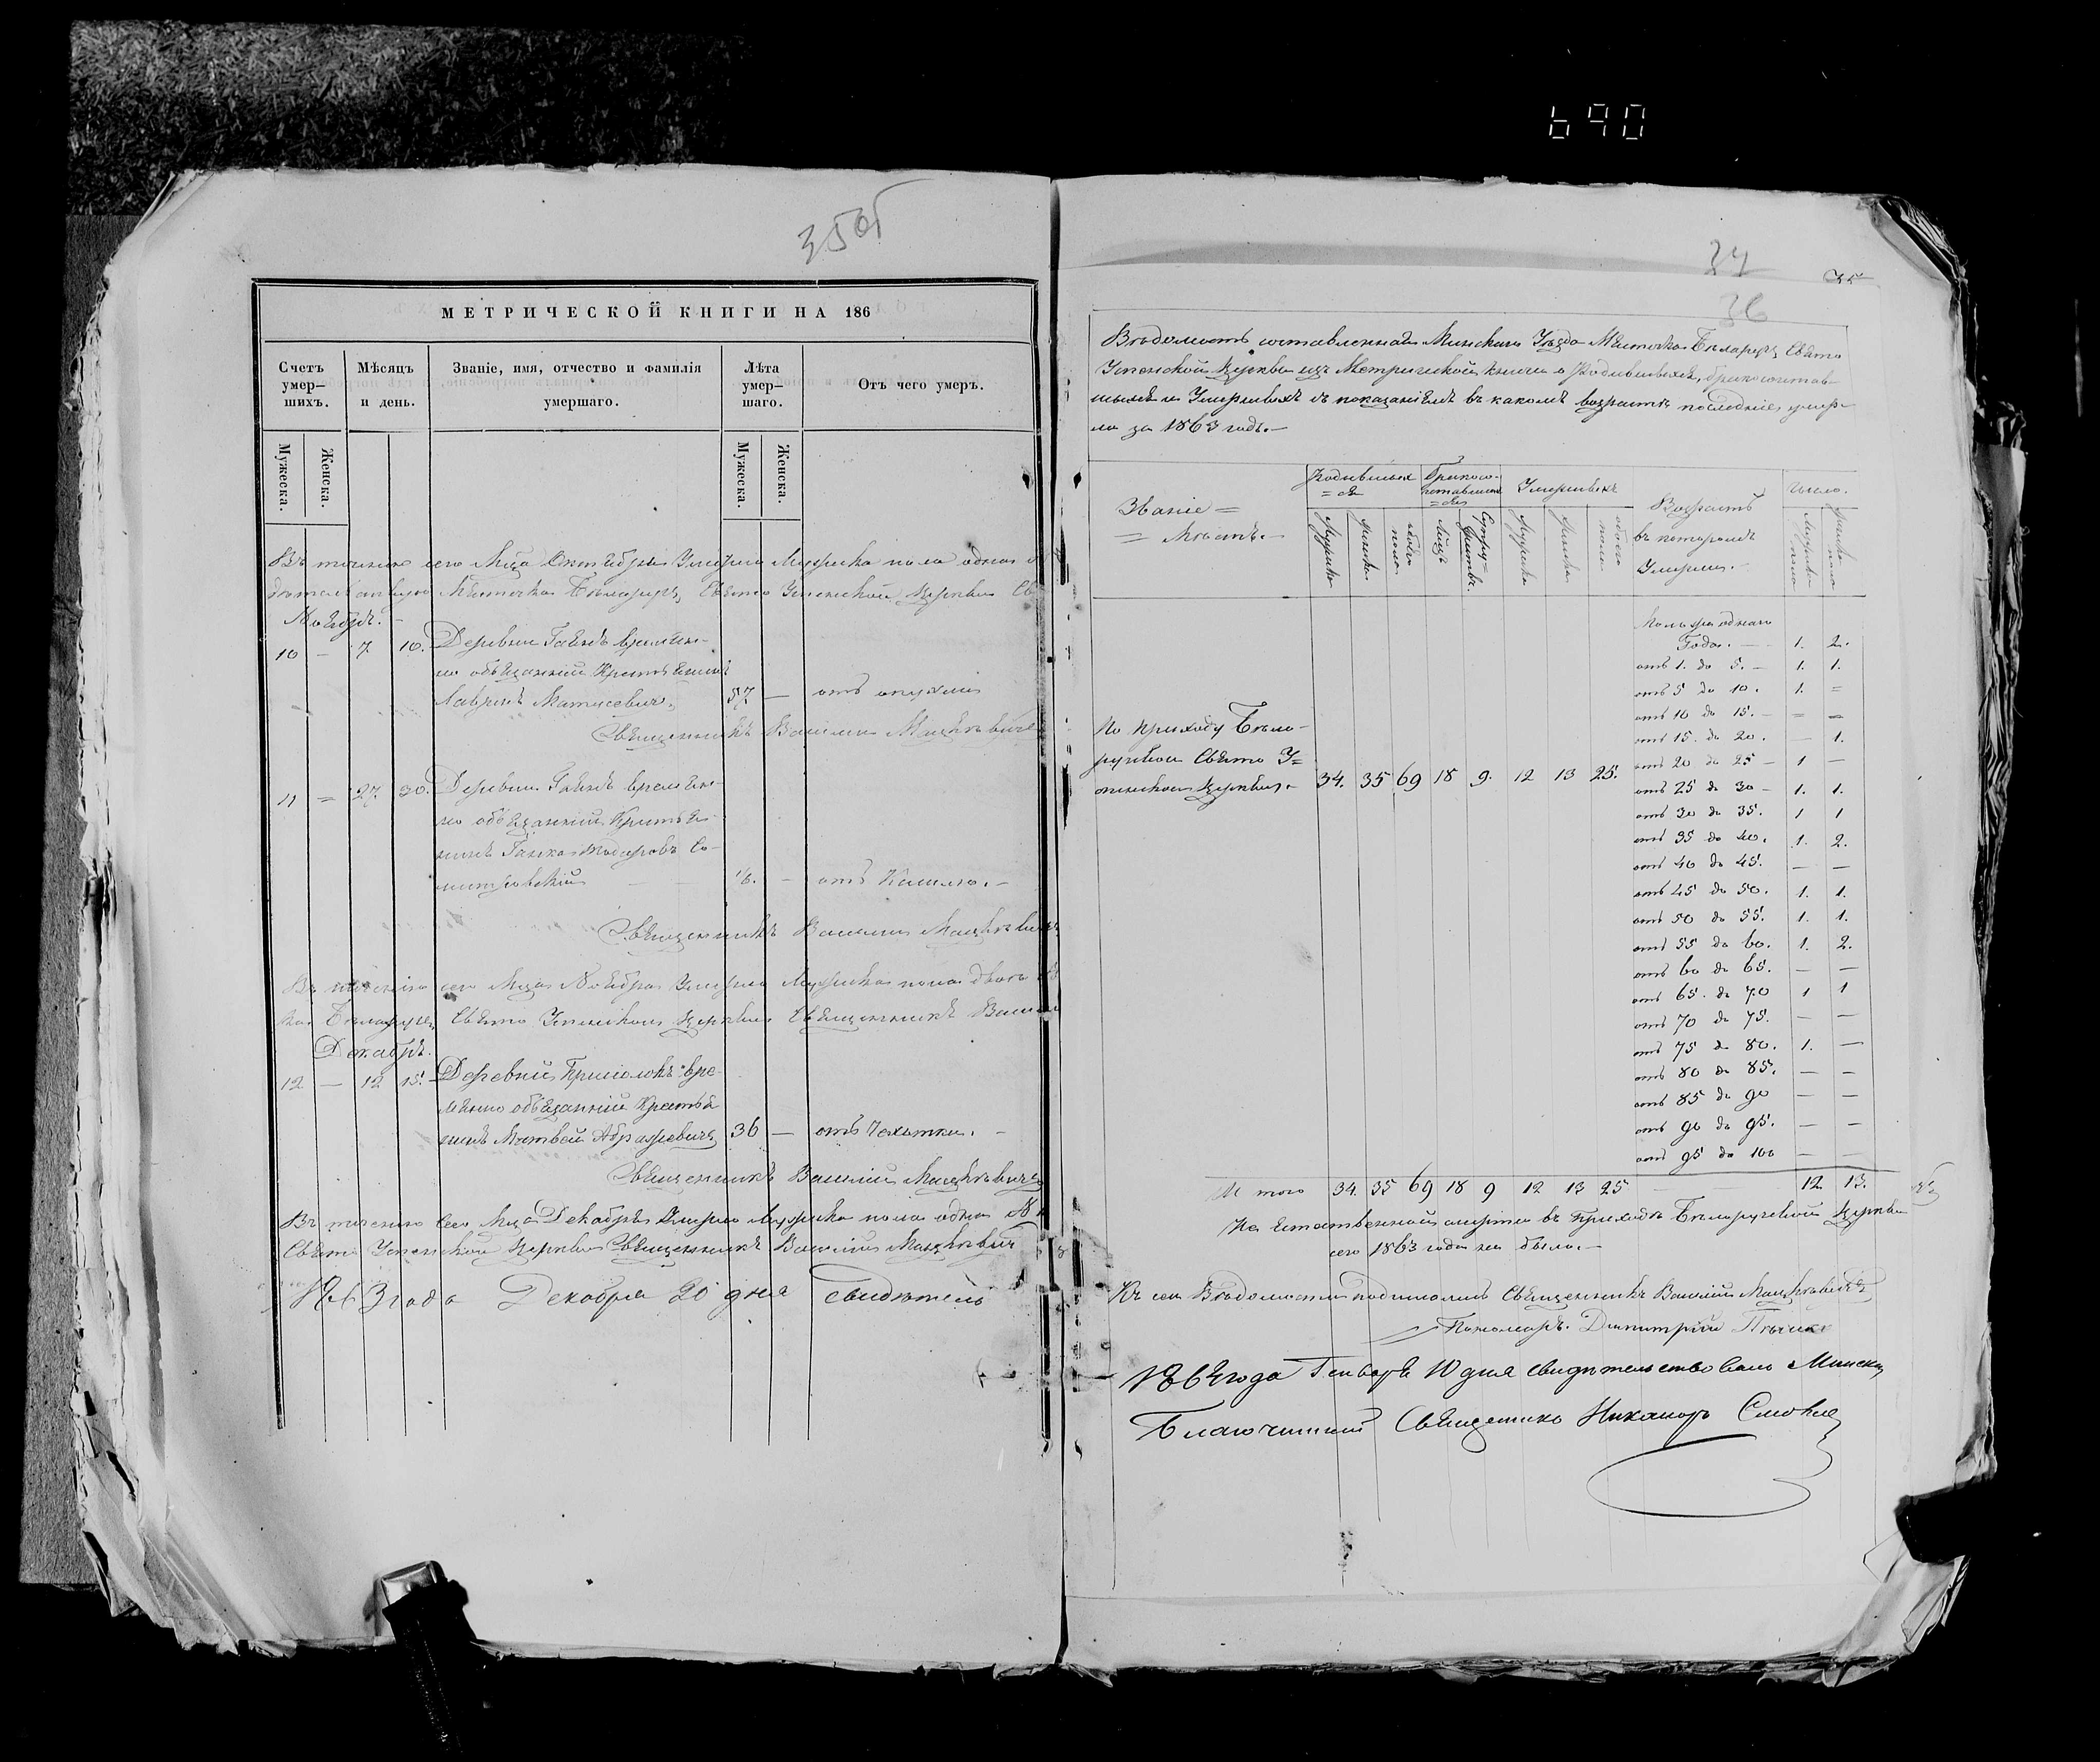 690
35об
МЕТРИЧЕСКОЙ КНИГИ НА 186
Счетъ умер-шихъ.
Мѣсяцъ и день.
Званіе, имя, отчество и фамилія умершаго.
Лѣта умер-шаго.
Отъ чего умеръ.
Мужеска.
Женска.
Мужеска.
Женска.
Въ теченіе сего Мца Октября Умерло Мужеска пола одинъ
Мѣстечка Бѣларучъ Свято Успенской Церкви
Ноябрь.
10 — 7 10. Деревни Гаянъ времен-
но обязанный Крестьянинъ
Лавринъ Матусевичъ 57 — отъ опухли
Священникъ Василій Мацкевичъ
11 = 27. 30. Деревни Гаянъ времен-
но обязанный Крестья-
нинъ
— отъ Кашлю. —
Священникъ Василій Мацкевичъ
Въ теченіе сего Мца Ноября Умерло Мужеска пола двоя
Бѣларучъ Свято Успенской Церкви Священникъ Васил
Декабрь.
12 — 12 15. Деревни вре-
менно обязанный Крестья
нинъ Матвей Абрамовичъ 36 — отъ Чахотки. —
Священникъ Василій Мацкевичъ
Въ теченіе Сего Мца Декабря Умерло Мужеска пола одинъ
Свято Успенской Церкви Священникъ Василій Мацкевич
1863 года Декабря 20 дня свидѣтель
34
35
36
Вѣдомость составленная Минскаго Уѣзда Мѣстечка Бѣларучъ Свято
Успенской Церкви изъ Метрической книги о Родившихся, бракосочетав-
шихся и Умершихъ съ показаніемъ въ какомъ возрастѣ последніе умер-
ли за 1863 годъ. —
Званіе =
= Мѣстъ. —
Родившых
= ся
Бракосо-
четавших
= ся
Умершихъ
Возрастъ
въ которомъ
Умерли. —
Число.
Мужеска
Женска
обоего пола
Лицъ
Супру-жествъ.
Мужеска
Женска
обоего пола
Мужеска пола
Женска пола
Мольже однаго
Года. — 1. 2.
отъ 1. до 5. — 1. 1.
отъ 5 до 10. 1. =
отъ 10 до 15. — = =
отъ 15. до 20. — 1.
отъ 20 до 25 — 1 —
отъ 25 до 30 — 1. 1.
отъ 30 до 35. 1 1
отъ 35 до 40. 1. 2.
отъ 40 до 45. — —
отъ 45 до 50. 1. 1.
отъ 50 до 55. 1. 1.
отъ 55 до 60. 1. 2.
отъ 60 до 65. — —
отъ 65. до 70 1 1
отъ 70 до 75. — —
отъ 75 до 80. 1. —
отъ 80 до 85. — —
отъ 85 до 90 — —
отъ 90 до 95. — —
отъ 95 до 100 — —
По приходу Бѣло-
ручской Свято У=
спенской Церкви. — 34. 35 69 18 9. 12 13 25.
И того 34. 35 69 18 9 12 13 25 12. 13.
Не Естественной смерти въ Приходѣ Бѣларучской Церкви
сего 1863 года не было. —
Къ сей Вѣдомости подписались Священникъ Василій Мацкевичъ
Пономаръ. Димитрій
1864 года Генваря 10 дня свидѣтельствовалъ Минскій
Благочинный Священникъ Никаноръ Смолич